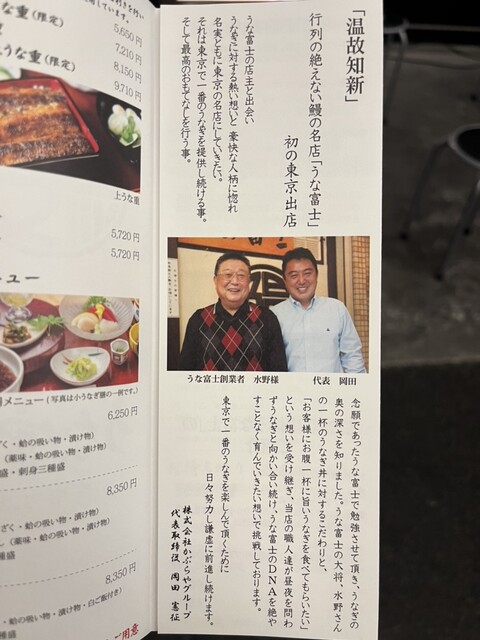 「温故知新」
行列の絶えない鰻の名店「うな富士」
初の東京出店
うな富士の店主と出会い
うなぎに対する熱い想いと 豪快な人柄に惚れ
名実ともに東京の名店にしていきたい。
それは東京で一番のうなぎを提供し続ける事。
そして最高のおもてなしを行う事。
うな富士創業者 水野様
代表 岡田
念願であったうな富士で勉強させて頂き、うなぎの
奥の深さを知りました。うな富士の大将、水野さん
の一杯のうなぎ丼に対するこだわりと、
「お客様にお腹一杯に旨いうなぎを食べてもらいたい」
という想いを受け継ぎ、当店の職人達が昼夜を問わ
ずうなぎと向かい合い続け、うな富士のDNAを絶や
すことなく育んでいきたい想いで挑戦しております。
東京で一番のうなぎを楽しんで頂くために
日々努力し謙虚に前進し続けます。
株式会社かぶらやグループ
代表取締役 岡田 憲征
な重(限定)
5,650円
7,210円
うな重(限定)
8,150円
9,710円
上うな重
5,720円
5,720円
ニュー
メニュー(写真は小うなぎ膳の一例です。)
6,250円
ざく・蛤の吸い物・漬け物)
(薬味・蛤の吸い物・漬け物)
盛・刺身三種盛
8,350円
ざく・蛤の吸い物・漬け物)
(薬味・蛤の吸い物・漬け物)
種盛
8,350円
蛤の吸い物・漬け物・白ご飯付き)
ご用意